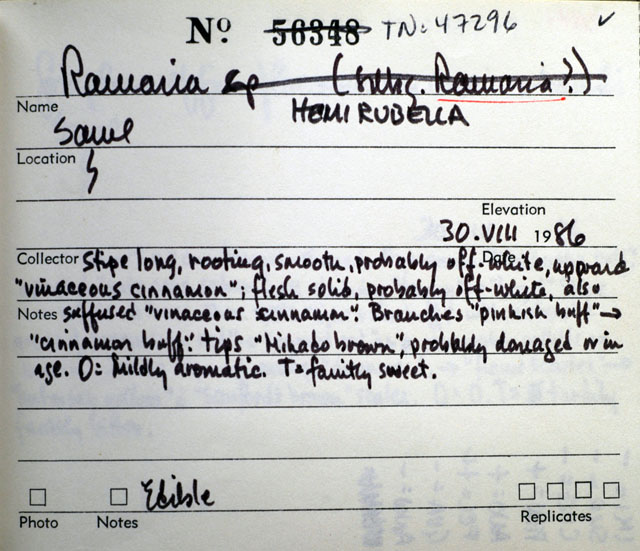 Nº 56348 TN: 47296 ✓
Ramaria sp (subg. Ramaria?)
Name HEMIRUBELLA
Same
Location
Elevation
30.VIII 1986
Collector Date
Stipe long, rooting, smooth, probably off-white, upward
"vinaceous cinnamon"; flesh solid, probably off-white, also
Notes suffused "vinaceous cinnamon". Branches "pinkish buff" →
"cinnamon buff". tips "Mikado brown", probably damaged or in
age. O: Mildly aromatic. T = faintly sweet.
Edible
Photo Notes Replicates